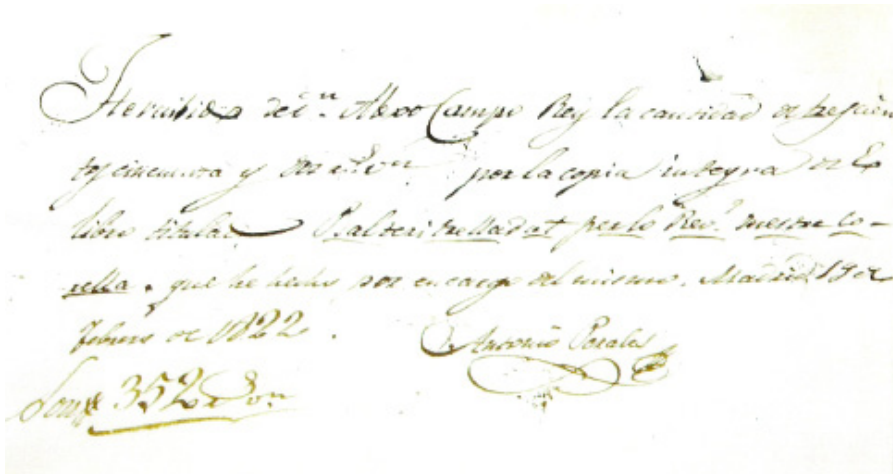 He recibido del S.ʳ Campo Rey la cantidad de trescien
tos cincuenta y dos r.ˢ vⁿ por la copia integra de el
libro titulado Psalteri trelladat per lo Rev.ᵗ mestre Co-
rella, que he hecho por encargo del mismo. Madrid 19 de
febrero de 1822.
Antonio Perales
Son 352 r.ˢ vⁿ